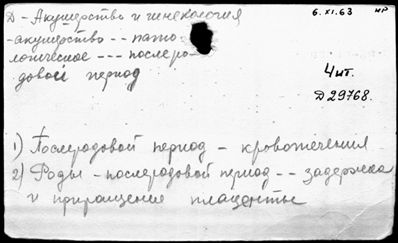 Д - Акушерство и гинекология
6.XI.63
нр
-акушерство -- пато
логическое --- послеро-
довой период
Чит.
Д29768.
1) Послеродовой период - кровотечения
2) Роды - послеродовой период -- задержка
и приращение плаценты